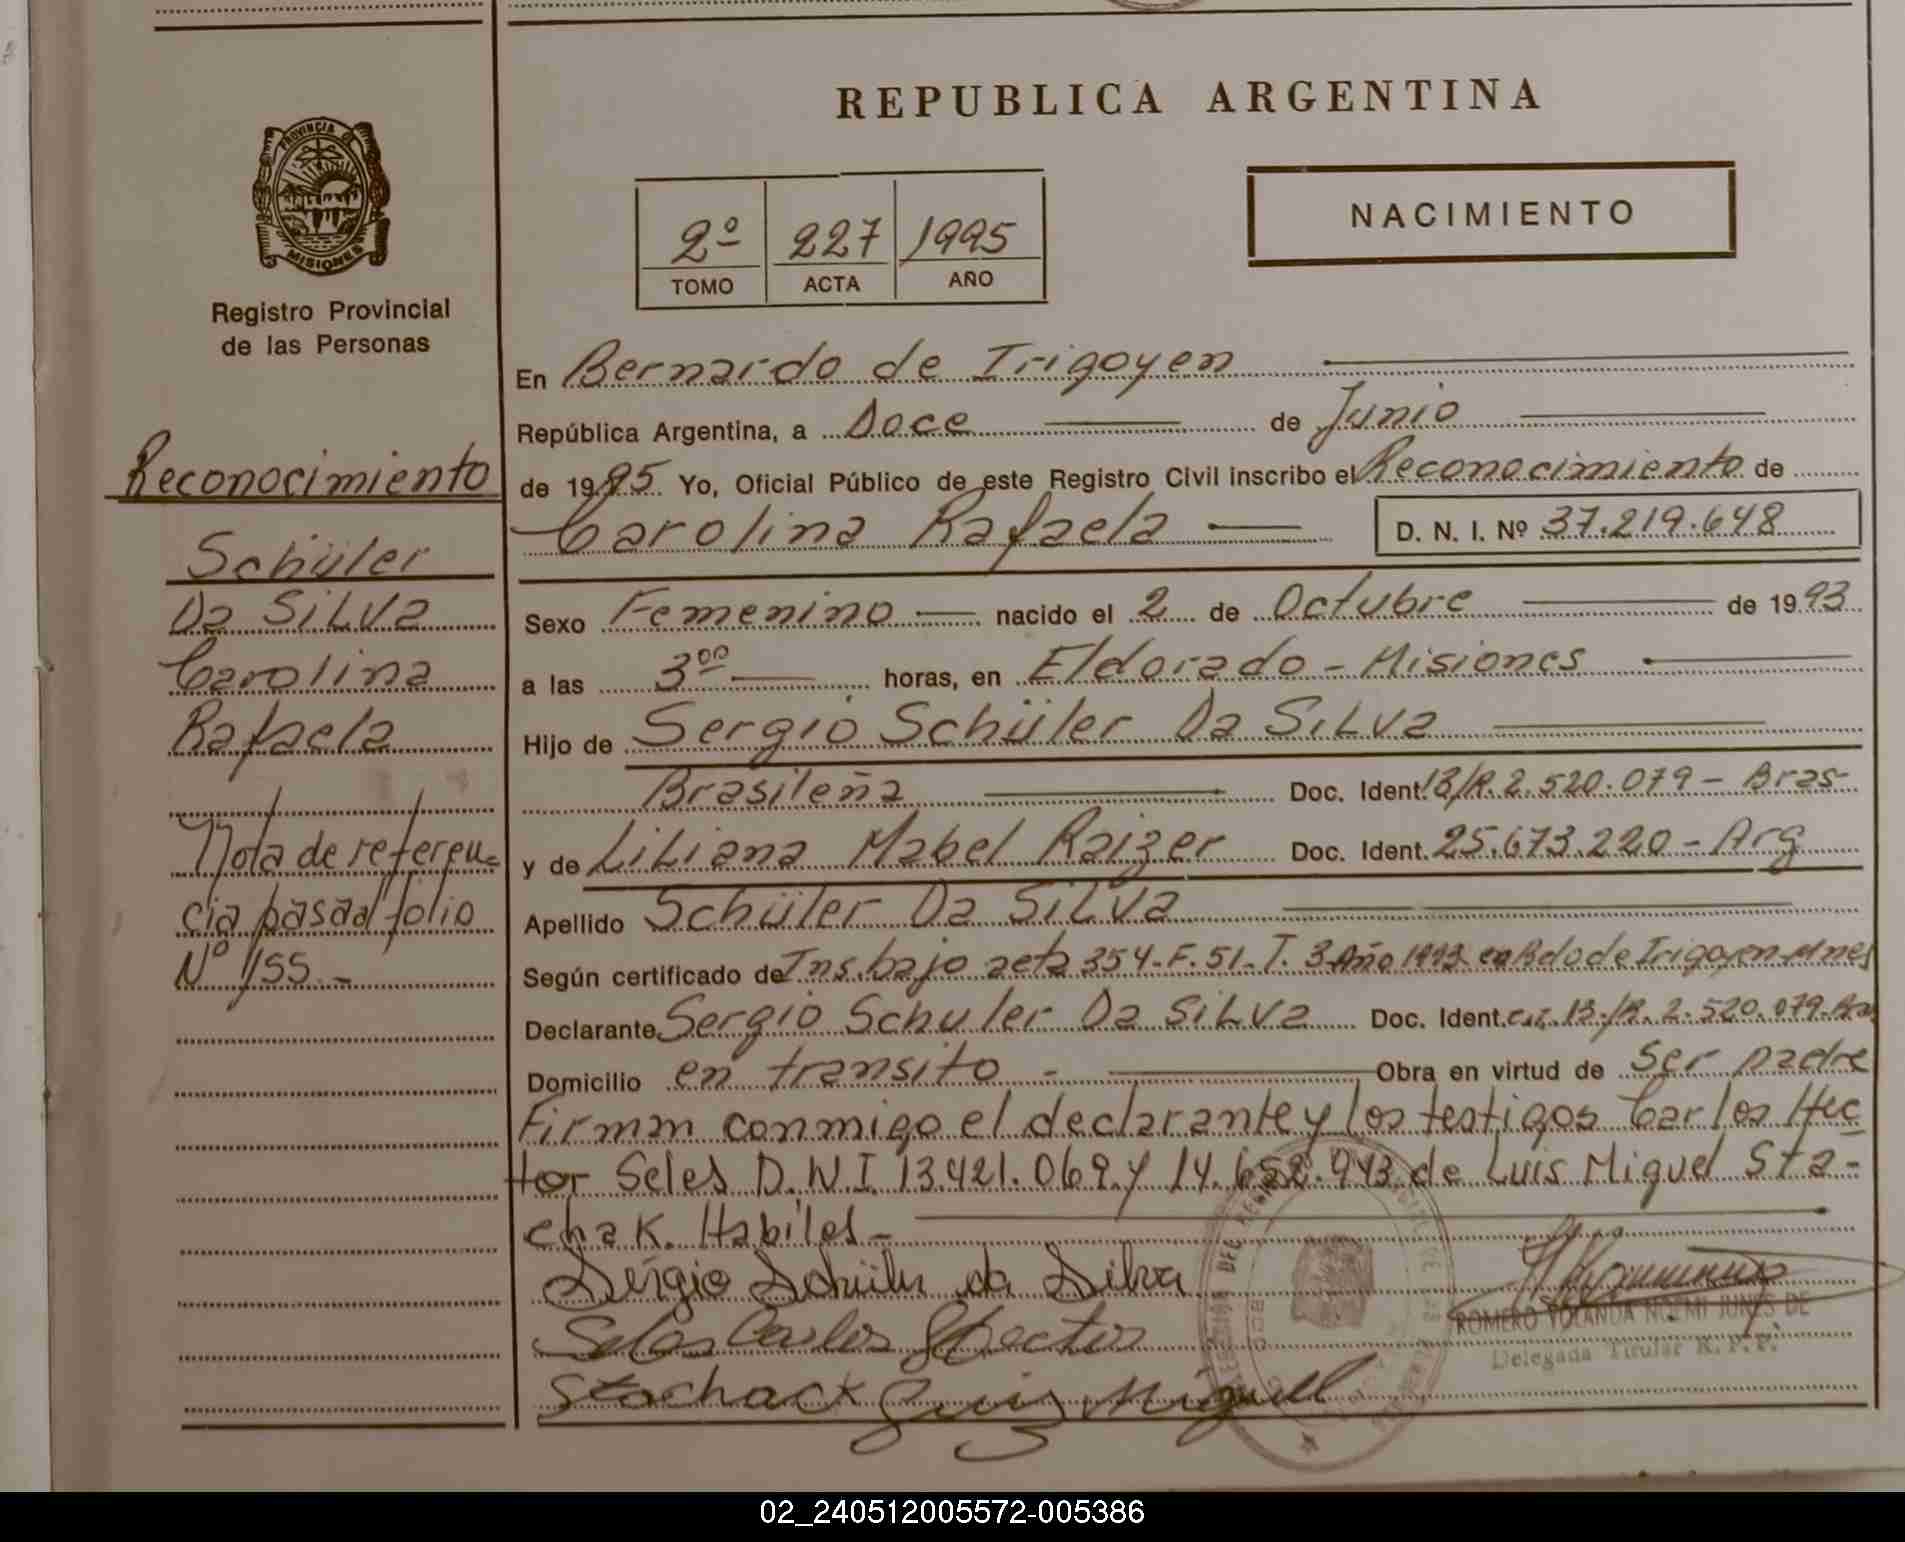 REPUBLICA ARGENTINA
PROVINCIA DE
MISIONES
Registro Provincial
de las Personas
2º 227 1995
TOMO ACTA AÑO
NACIMIENTO
Reconocimiento
Schüler
Da SiLVa
Carolina
Rafaela
Nota de referen-
cia pasada folio
Nº 155.-
En Bernardo de Irigoyen
República Argentina, a Doce de Junio
de 1995 Yo, Oficial Público de este Registro Civil inscribo el Reconocimiento de
Carolina Rafaela D. N. I. Nº 37.219.648
Sexo Femenino nacido el 2 de Octubre de 1993
a las 3⁰⁰ horas, en Eldorado - Misiones
Hijo de Sergio Schüler Da SiLVa
Brasileña Doc. Ident. 13/R.2.520.079 - Bras-
y de LiLiana Mabel Raizer Doc. Ident. 25.673.220 - Arg
Apellido Schüler Da SiLVa
Según certificado de Ins. bajo acta 354-F.51-T.3-Año 1993 en Bdo de Irigoyen-Mnes
Declarante Sergio Schuler Da SiLVa Doc. Ident. C.I. 13/R.2.520.079-Bra
Domicilio en transito - Obra en virtud de Ser padre
Firman conmigo el declarante y los testigos Carlos Hec
tor Seles D.N.I. 13.421.069 y 14.652.943 de Luis Miguel Sta-
chak. Habiles -
Sergio Schüler da Silva
Seles Carlos Hector
Stachack Luis Miguel
ROMERO YOLANDA NOEMI JUNES DE
Delegada Titular R. P. P.
02_240512005572-005386